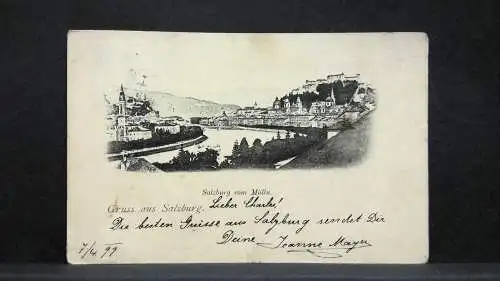 Salzburg vom Mölln.
Gruss aus Salzburg. Lieber Charles!
Die besten Grüsse aus Salzburg sendet Dir
Deine Joanne Mayer
7/4 99